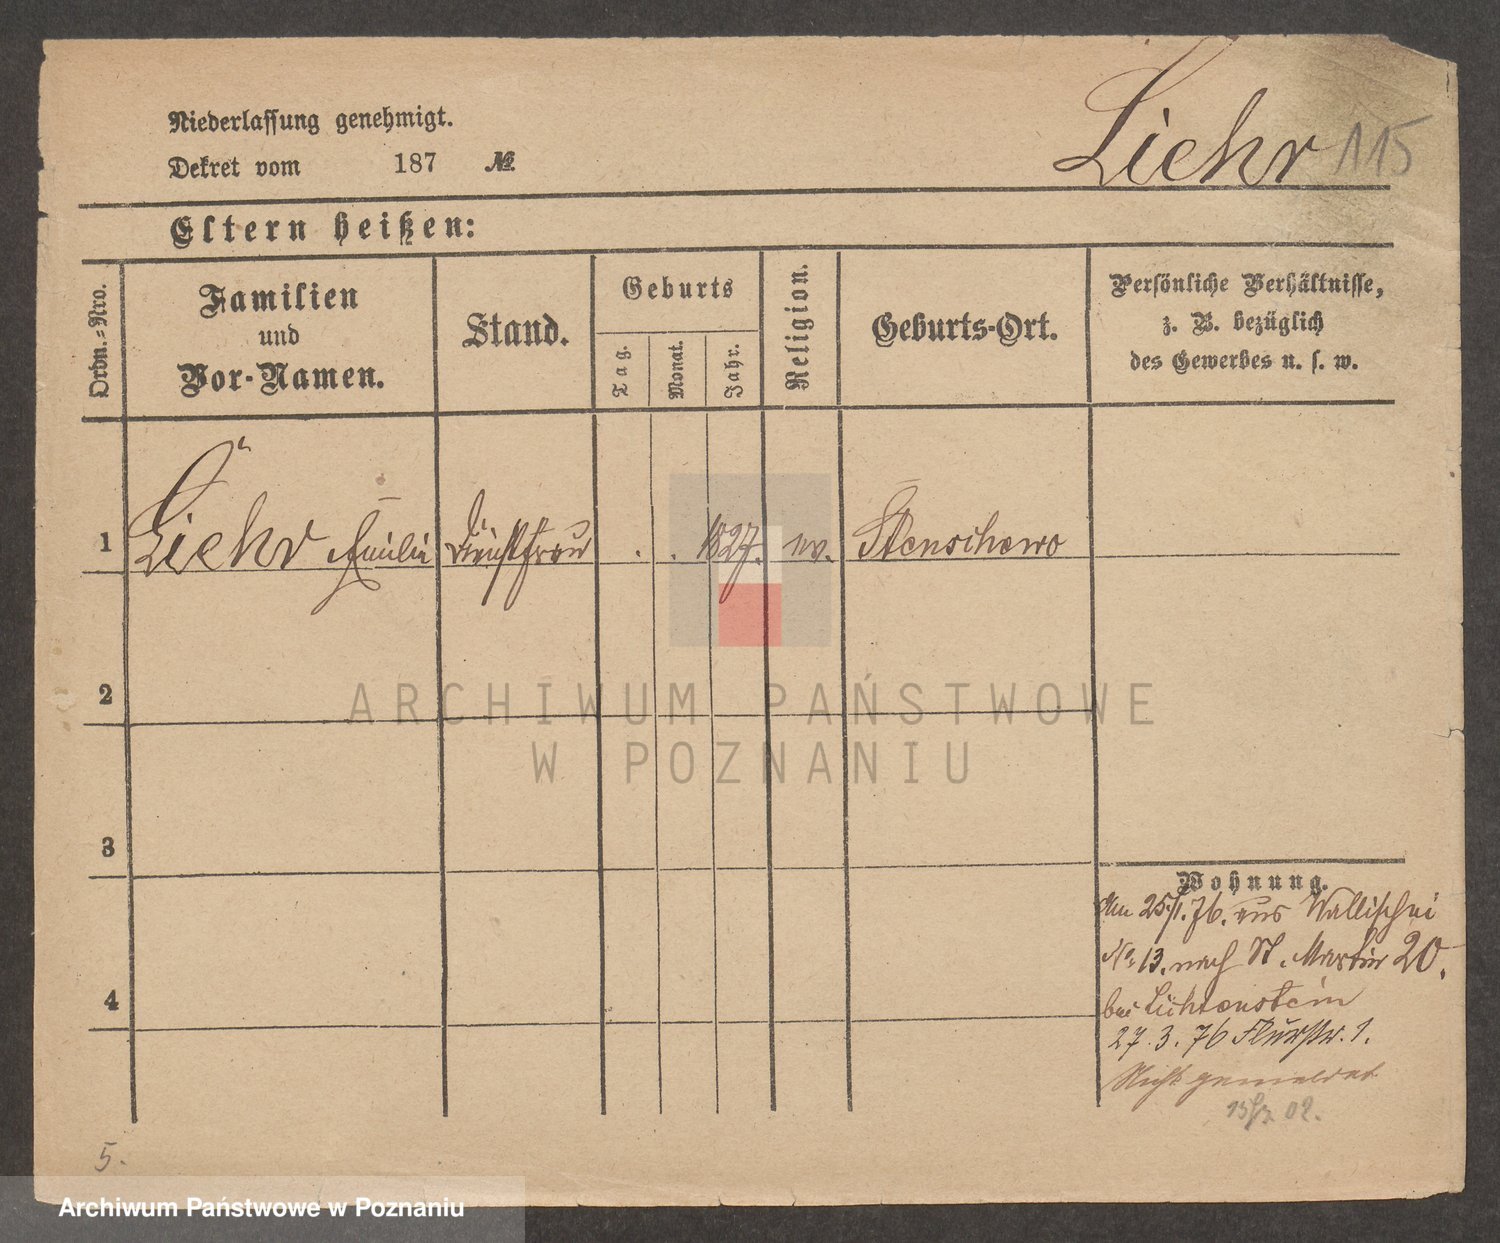 Liehr 115
Niederlassung genehmigt.
Dekret vom 187 №
Eltern heißen:
Ordn.=Nro.
Familien
und
Vor-Namen.
Stand.
Geburts
Tag.
Monat.
Jahr.
Religion.
Geburts-Ort.
Persönliche Verhältnisse,
z. B. bezüglich
des Gewerbes u. s. w.
1 Liehr Emilie Dienstfrau . . 1827. ev. Stenschewo
2
3
4
Wohnung.
Am 25/1.76. aus Wallischei
No 13. nach St. Martin 20.
bei Lichtenstein
27.3.76 Flurstr. 1.
Nicht gemeldet
02.
5.
ARCHIWUM PAŃSTWOWE
W POZNANIU
Archiwum Państwowe w Poznaniu